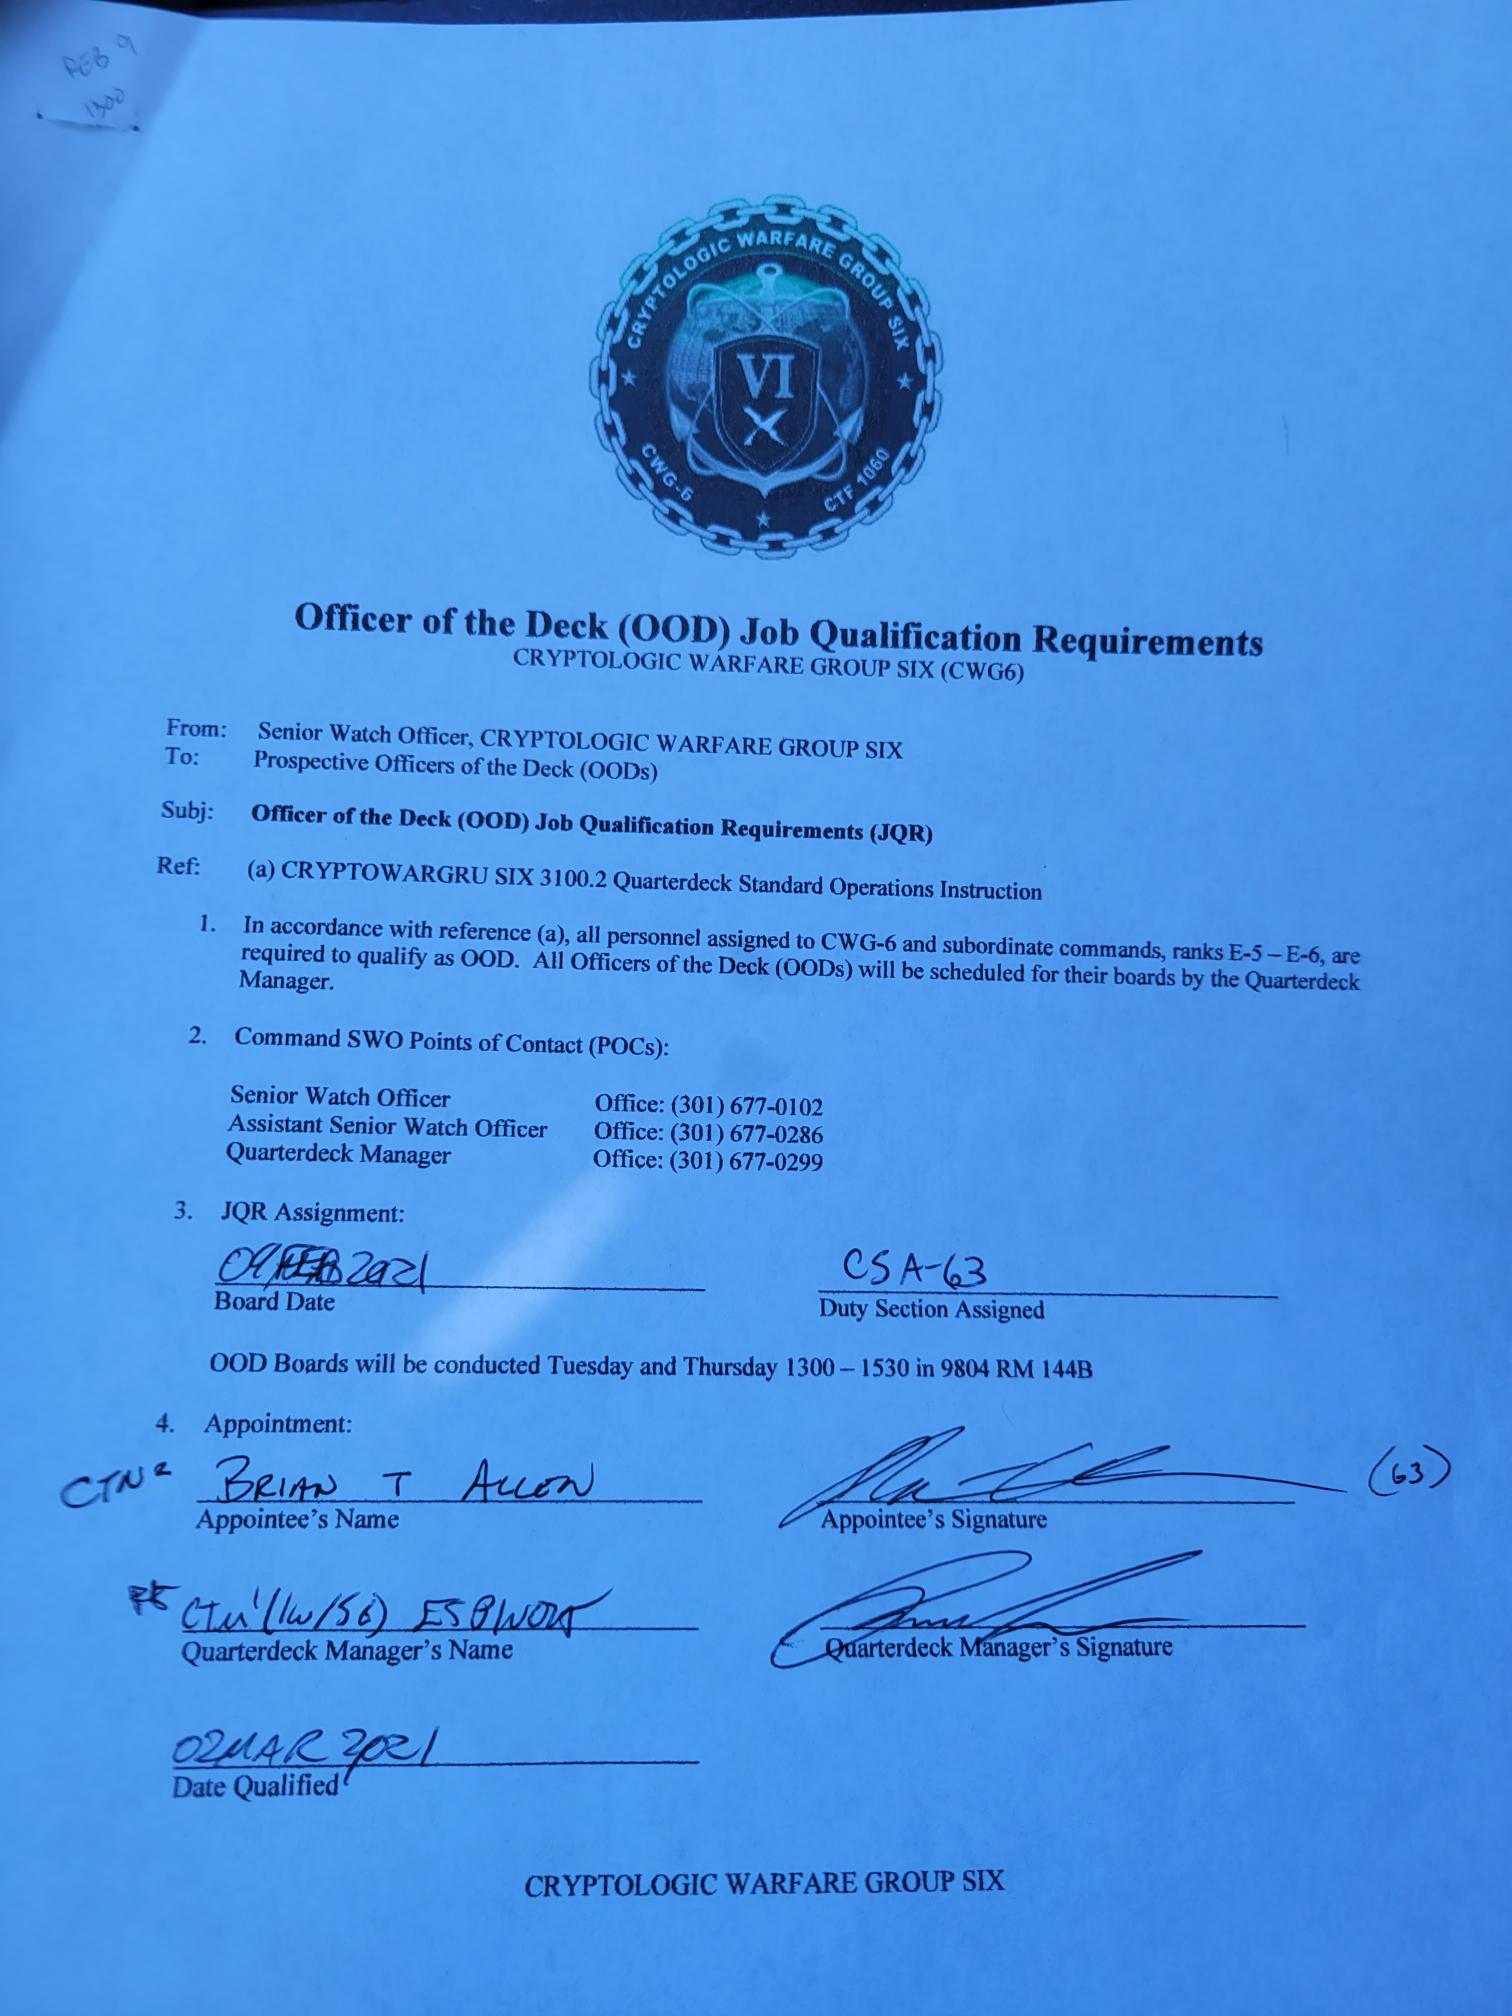 FEB 9
1300
CRYPTOLOGIC WARFARE GROUP SIX
VI
CWG-6
CTF 1060
Officer of the Deck (OOD) Job Qualification Requirements
CRYPTOLOGIC WARFARE GROUP SIX (CWG6)
From: Senior Watch Officer, CRYPTOLOGIC WARFARE GROUP SIX
To: Prospective Officers of the Deck (OODs)
Subj: Officer of the Deck (OOD) Job Qualification Requirements (JQR)
Ref: (a) CRYPTOWARGRU SIX 3100.2 Quarterdeck Standard Operations Instruction
1. In accordance with reference (a), all personnel assigned to CWG-6 and subordinate commands, ranks E-5 – E-6, are
required to qualify as OOD. All Officers of the Deck (OODs) will be scheduled for their boards by the Quarterdeck
Manager.
2. Command SWO Points of Contact (POCs):
Senior Watch Officer Office: (301) 677-0102
Assistant Senior Watch Officer Office: (301) 677-0286
Quarterdeck Manager Office: (301) 677-0299
3. JQR Assignment:
09 FEB 2021 CSA-63
Board Date Duty Section Assigned
OOD Boards will be conducted Tuesday and Thursday 1300 – 1530 in 9804 RM 144B
4. Appointment:
CTN2 BRIAN T ALLEN (63)
Appointee's Name Appointee's Signature
(IW/SG)
Quarterdeck Manager's Name Quarterdeck Manager's Signature
02MAR 2021
Date Qualified
CRYPTOLOGIC WARFARE GROUP SIX